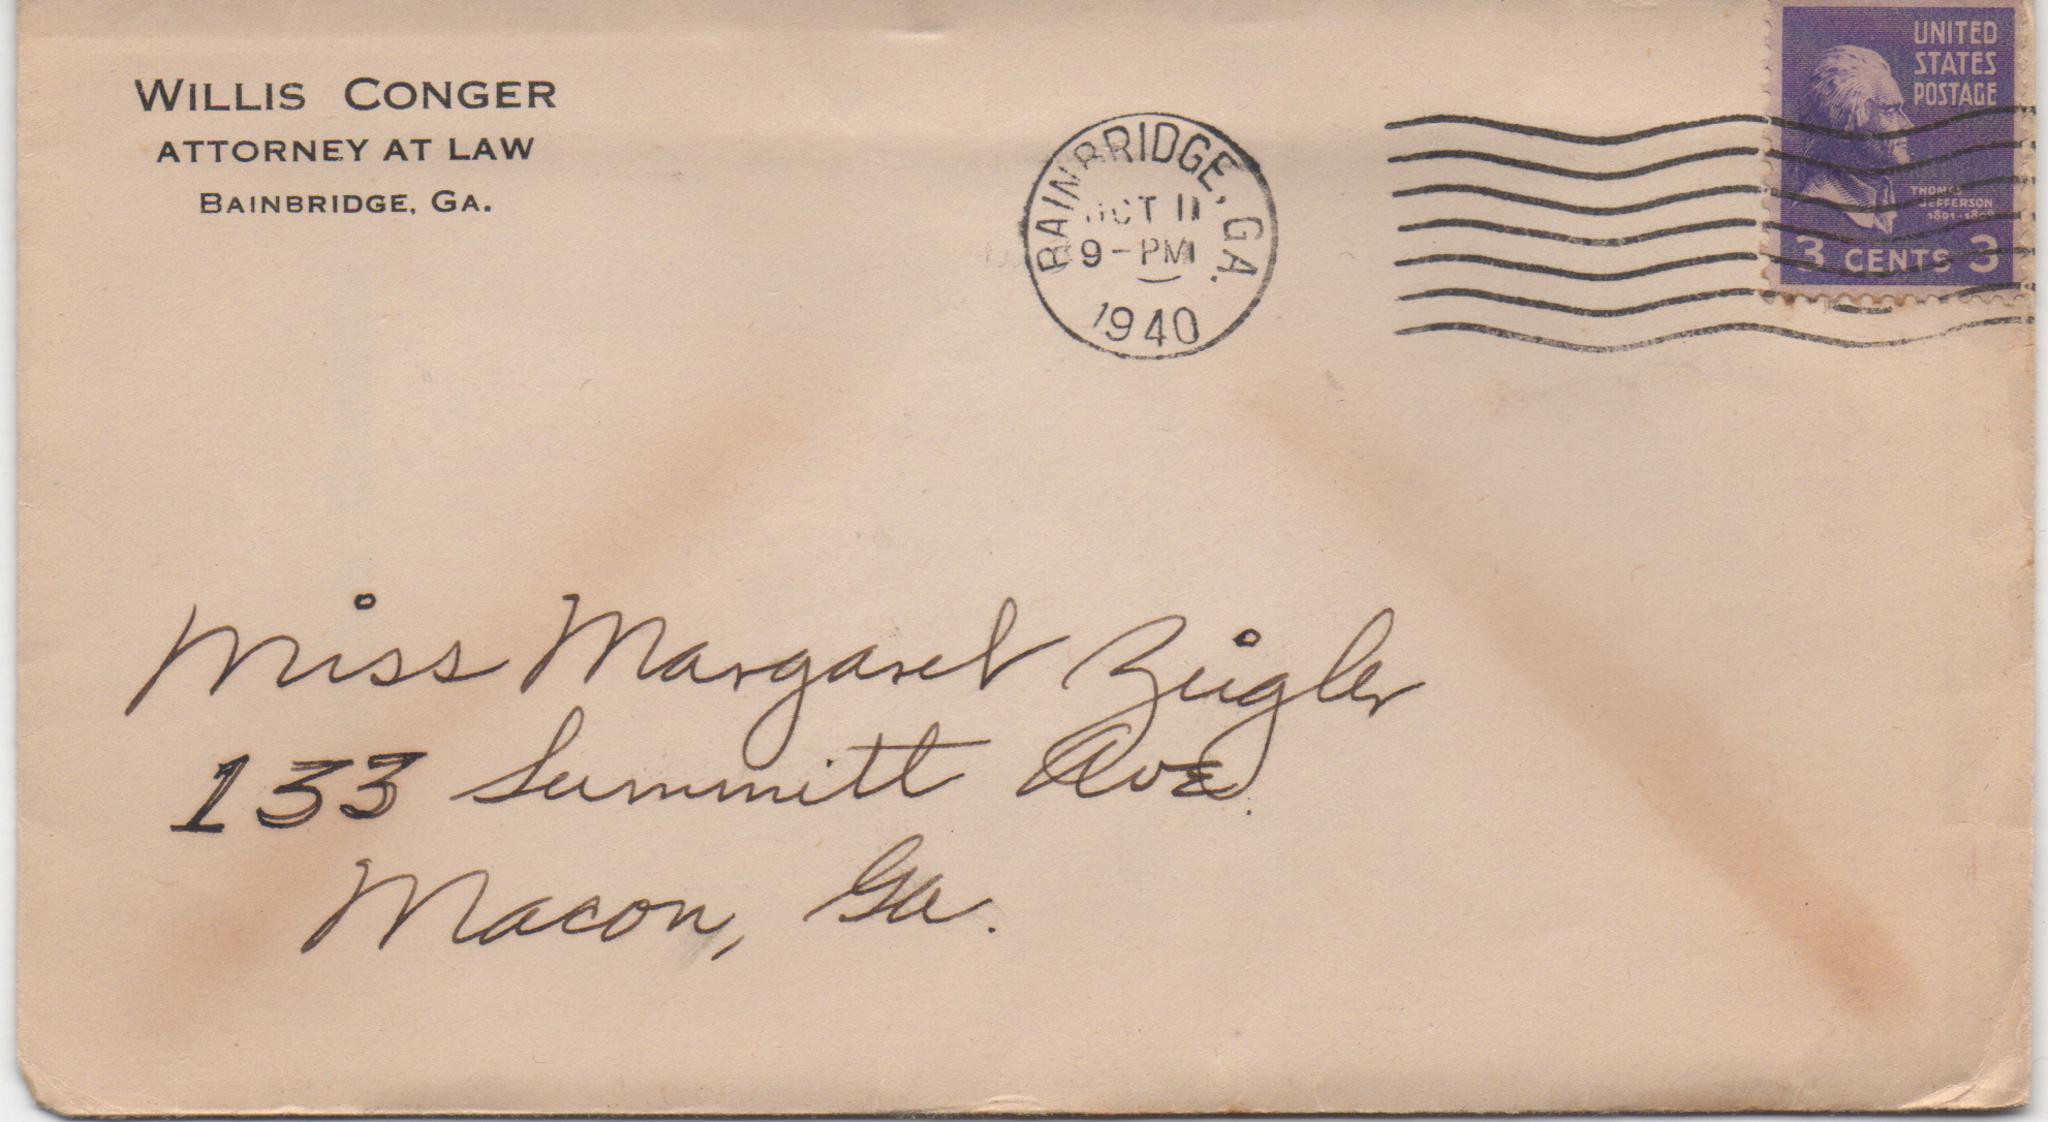 WILLIS CONGER
ATTORNEY AT LAW
BAINBRIDGE, GA.
BAINBRIDGE, GA.
OCT 11
9-PM
1940
UNITED
STATES
POSTAGE
THOMAS
JEFFERSON
1801-1809
3 CENTS 3
Miss Margaret Zeigler
133 Summitt Ave.
Macon, Ga.